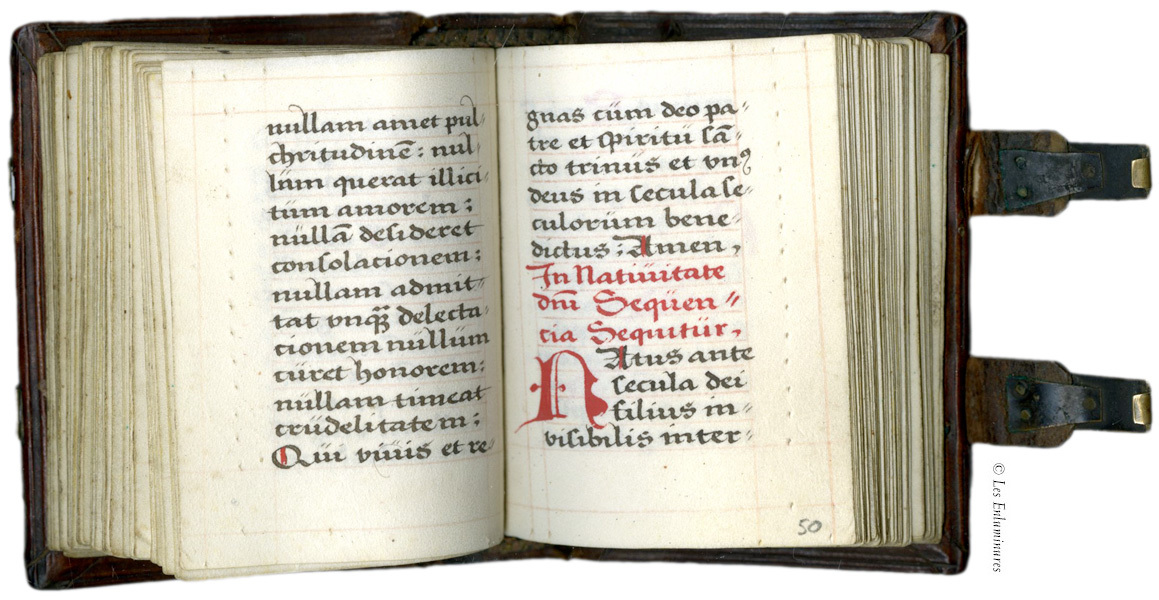 nullam amet pul⸗
chritudinē: nul⸗
lüm querat illici⸗
tüm amorem;
nüllā desideret
consolacionem;
nullam admit⸗
tat vnqꝫ delecta⸗
cionem nüllüm
cüret honorem:
nüllam timeat
crüdelitatem;
Qui viüis et re⸗
gnas cüm deo pa⸗
tre et spiritü sā⸗
cto triniis et vnꝰ
deus in secula se⸗
culorüm bene⸗
dictus; Amen,
In Natiüitate
dn̄i Seqüen⸗
cia Sequitür,
NAtus ante
secula dei
filius in⸗
visibilis inter⸗
50
© Les Enluminures